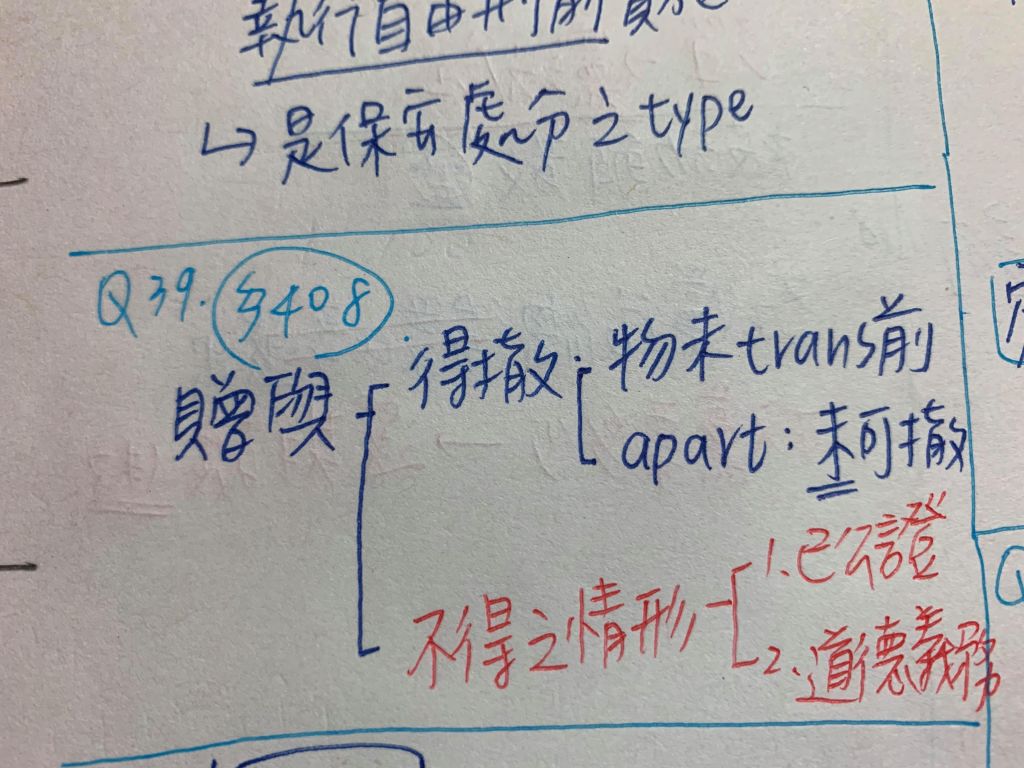 執行自由刑前
↳ 是保安處分之type
Q39. §408
贈與
得撤
物未trans前
apart：未可撤
不得之情形
1.已公證
2.道德義務